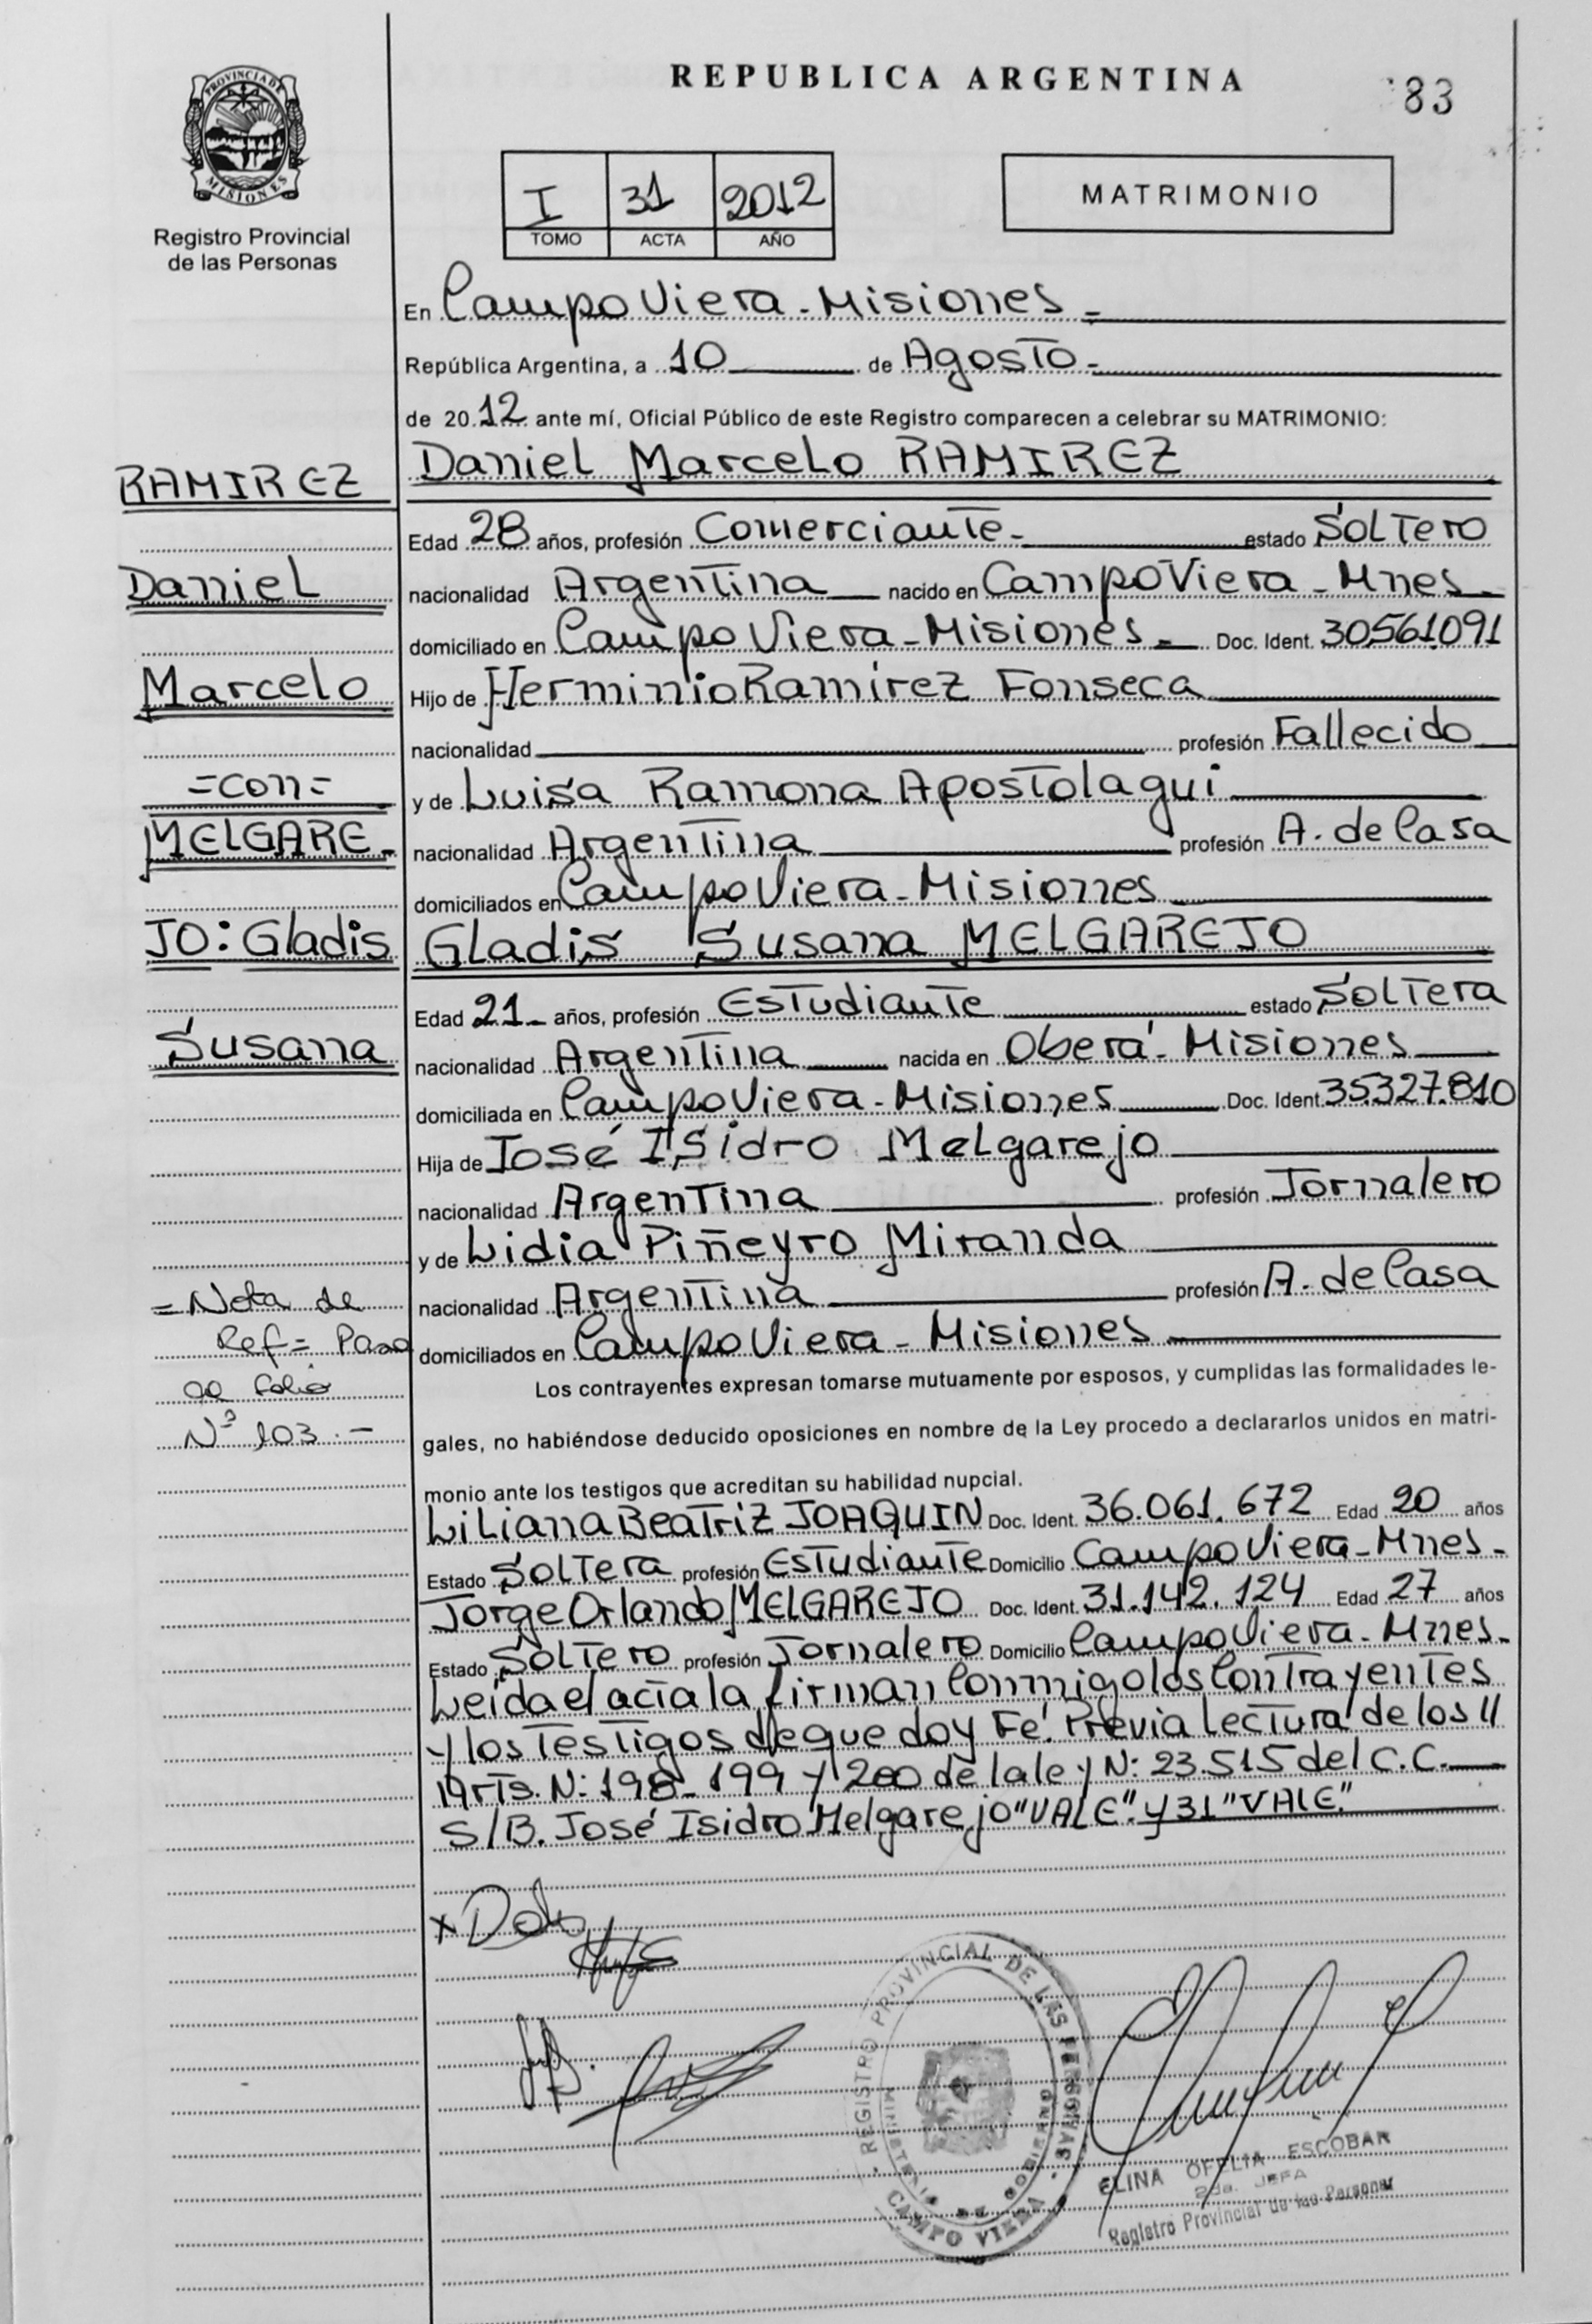 REPUBLICA ARGENTINA
83
PROVINCIA DE
MISIONES
Registro Provincial
de las Personas
I 31 2012
TOMO ACTA AÑO
MATRIMONIO
En Campo Viera - Misiones =
República Argentina, a 10 de Agosto -
de 2012 ante mí, Oficial Público de este Registro comparecen a celebrar su MATRIMONIO:
RAMIREZ
Daniel Marcelo RAMIREZ
Edad 28 años, profesión Comerciante - estado Soltero
Daniel
nacionalidad Argentina nacido en Campo Viera - Mnes -
domiciliado en Campo Viera - Misiones - Doc. Ident. 30561.091
Marcelo
Hijo de Herminio Ramírez Fonseca
nacionalidad profesión Fallecido
=con=
y de Luisa Ramona Apostolagui
MELGARE-
nacionalidad Argentina profesión A. de Casa
domiciliados en Campo Viera - Misiones
JO: Gladis
Gladis Susana MELGAREJO
Edad 21 años, profesión Estudiante estado Soltera
Susana
nacionalidad Argentina nacida en Oberá - Misiones
domiciliada en Campo Viera - Misiones Doc. Ident. 35.327.810
Hija de José Isidro Melgarejo
nacionalidad Argentina profesión Jornalero
y de Lidia Piñeyro Miranda
= Nota de
nacionalidad Argentina profesión A. de Casa
Ref = Pasa
domiciliados en Campo Viera - Misiones
al folio
Los contrayentes expresan tomarse mutuamente por esposos, y cumplidas las formalidades le-
Nº 103.-
gales, no habiéndose deducido oposiciones en nombre de la Ley procedo a declararlos unidos en matri-
monio ante los testigos que acreditan su habilidad nupcial.
Liliana Beatriz JOAQUIN Doc. Ident. 36.061.672 Edad 20 años
Estado Soltera profesión Estudiante Domicilio Campo Viera - Mnes -
Jorge Orlando MELGAREJO Doc. Ident. 31.142.124 Edad 27 años
Estado Soltero profesión Jornalero Domicilio Campo Viera - Mnes -
Leída el acta la firman Conmigo los Contrayentes
y los Testigos de que doy Fé. Previa Lectura de los
Arts. N: 198- 199 y 200 de la ley N: 23.515 del C.C.
S/B. José Isidro Melgarejo "VALE". y 31 "VALE."
REGISTRO PROVINCIAL DE LAS PERSONAS
MINISTERIO DE GOBIERNO
CAMPO VIERA
ELINA OFELIA ESCOBAR
2da. JEFA
Registro Provincial de las Personas